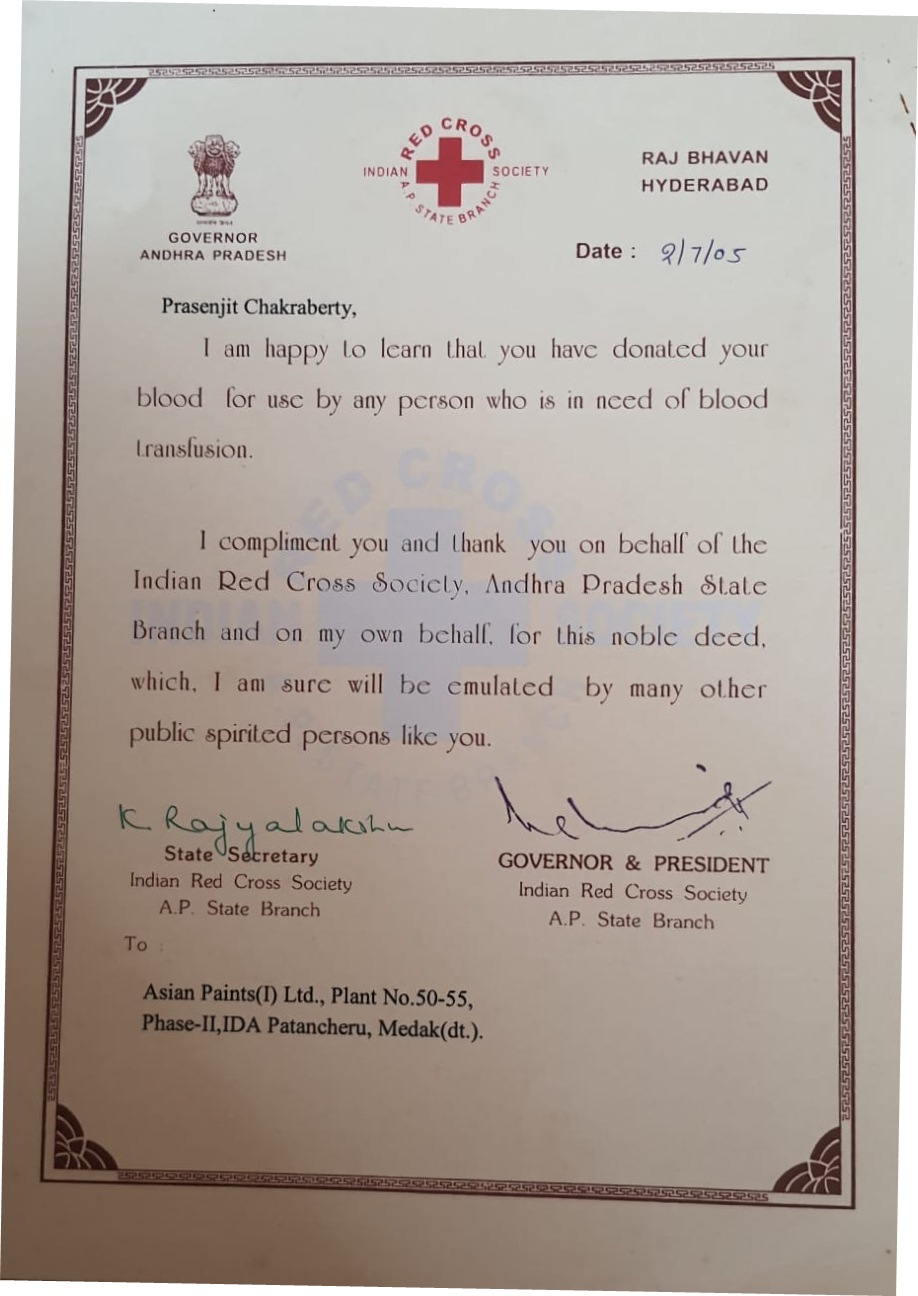 RED CROSS
INDIAN SOCIETY
A.P. STATE BRANCH
GOVERNOR
ANDHRA PRADESH
RAJ BHAVAN
HYDERABAD
Date : 2/7/05
Prasenjit Chakraberty,
I am happy to learn that you have donated your
blood for use by any person who is in need of blood
transfusion.
I compliment you and thank you on behalf of the
Indian Red Cross Society, Andhra Pradesh State
Branch and on my own behalf, for this noble deed,
which, I am sure will be emulated by many other
public spirited persons like you.
RED CROSS
INDIAN SOCIETY
A.P. STATE BRANCH
K. Rajyalakshmi
State Secretary
Indian Red Cross Society
A.P. State Branch
GOVERNOR & PRESIDENT
Indian Red Cross Society
A.P. State Branch
To :
Asian Paints(I) Ltd., Plant No.50-55,
Phase-II,IDA Patancheru, Medak(dt.).